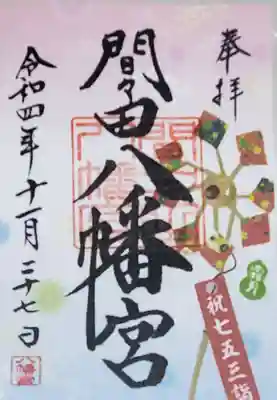 奉拝
間々田八幡宮
令和四年十一月二十七日
祝七五三詣